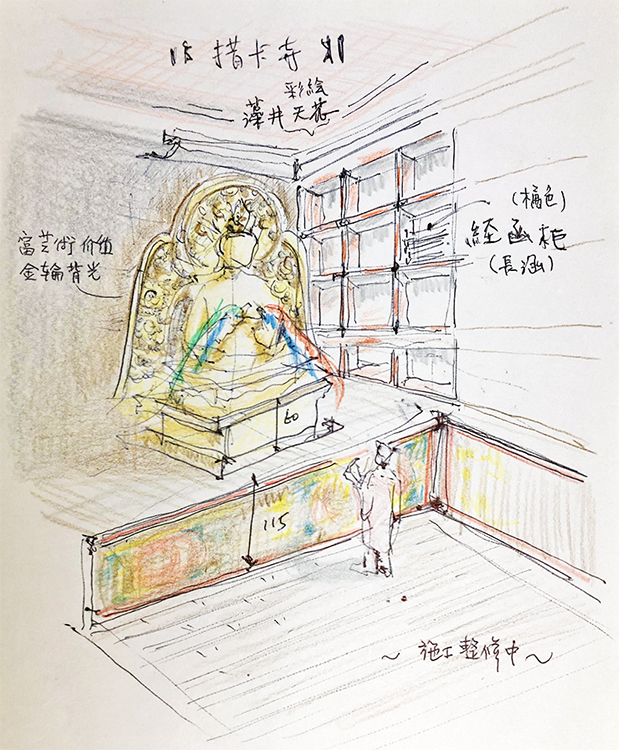 措卡寺
彩絵
藻井天花
富芸術价值
金輪背光
(橘色)
経函柜
(長涵)
60
115
~ 施工整修中 ~